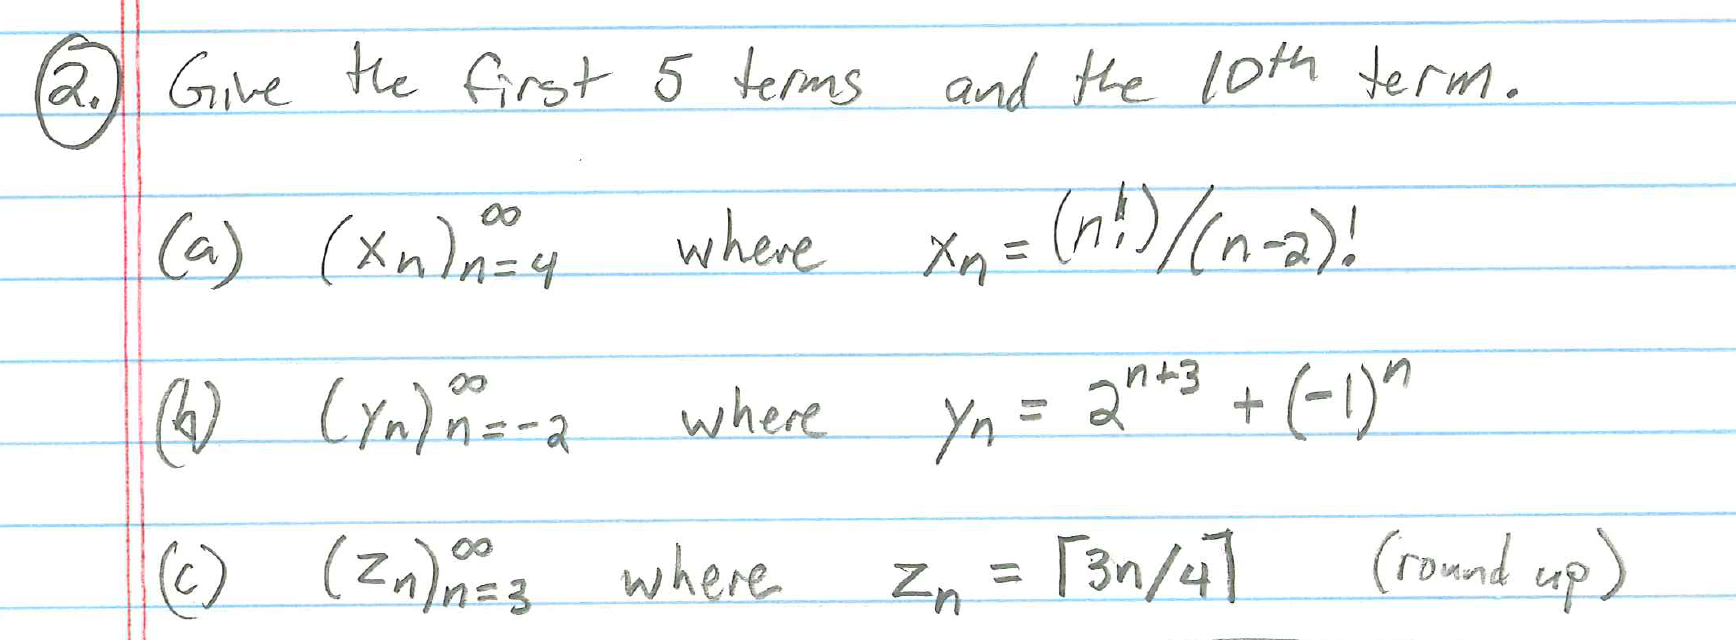 2. Give the first 5 terms and the 10th term.
(a) (xₙ)ₙ₌₄^∞ where xₙ = (n!)/(n-2)!
(b) (yₙ)ₙ₌₋₂^∞ where yₙ = 2ⁿ⁺³ + (-1)ⁿ
(c) (zₙ)ₙ₌₃^∞ where zₙ = ⌈3n/4⌉ (round up)